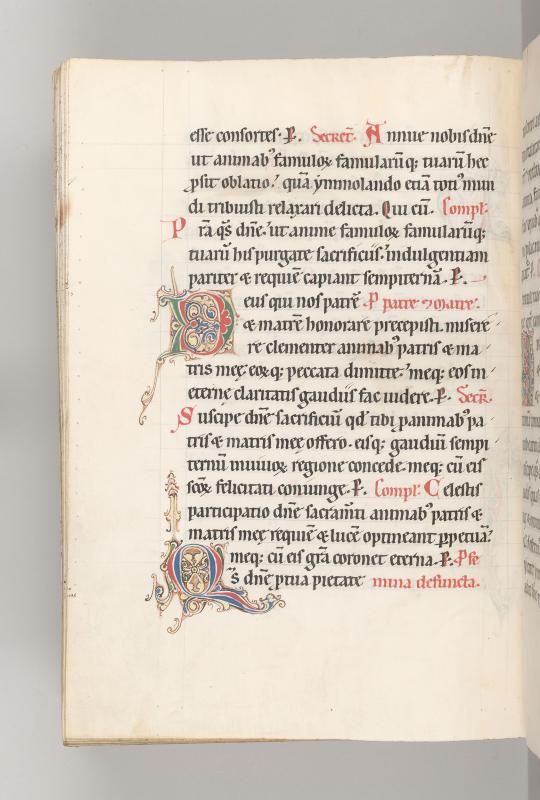 esse consortes. P̱. Secret̄. Annue nobis dn̄e
ut animab⁹ famuloꝝ famularūq; tuarū hec
ꝓsit oblatio! quā ẏmmolando etiā toti⁹ mun
di tribuisti relaxari delicta. Qui cū. Compl̄.
Prā q̄s dn̄e. ut anime famuloꝝ famularūq;
tuarū his purgate sacrificiis. indulgentiam
pariter & requiē capiant sempiternā. P̱.
Deus qui nos patrē P patre ⁊ matre.
& matrē honorare precepisti. misere
re clementer animab⁹ patris & ma
tris meę eoꝝq; peccata dimitte. meq; eos in
eterne claritatis gaudiis fac uidere. P̱. Secr̄.
Suscipe dn̄e sacrificiū qd̄ tibi ꝑ animab⁹ pa
tris & matris meę offero. eisq; gaudiū sempi
ternū in uiuoꝝ regione concede. meq; cū eis
scōꝝ felicitati coniunge. P̱. Compl̄. Celestis
participatio dn̄e sacram̄ti animab⁹ patris &
matris meę requiē & lucē optineant ꝑpetuā.
meq; cū eis gr̄a coronet eterna. P̱. P fe
Q̄s dn̄e ꝓ tua pietate mina defuncta.